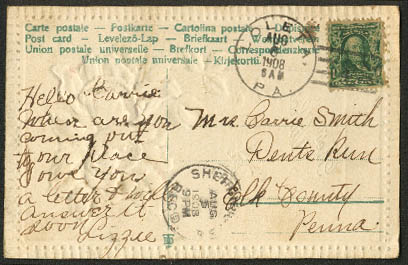 Carte postale — Postkarte — Cartolina postale
Post card — Levelező-Lap — Briefkaart —
Union postale universelle — Brefkort — Correspondenzkarte
Union postale universelle — Klejekortů
AUG
1908
8 AM
PA.
Hello Carrie
when are you
coming out
to our place
I owe you
a letter & will
answer it
soon
Lizzie
Mrs Carrie Smith
Dents Run
Elk County
Penna.
AUG
5
9 PM
1908
REC'D